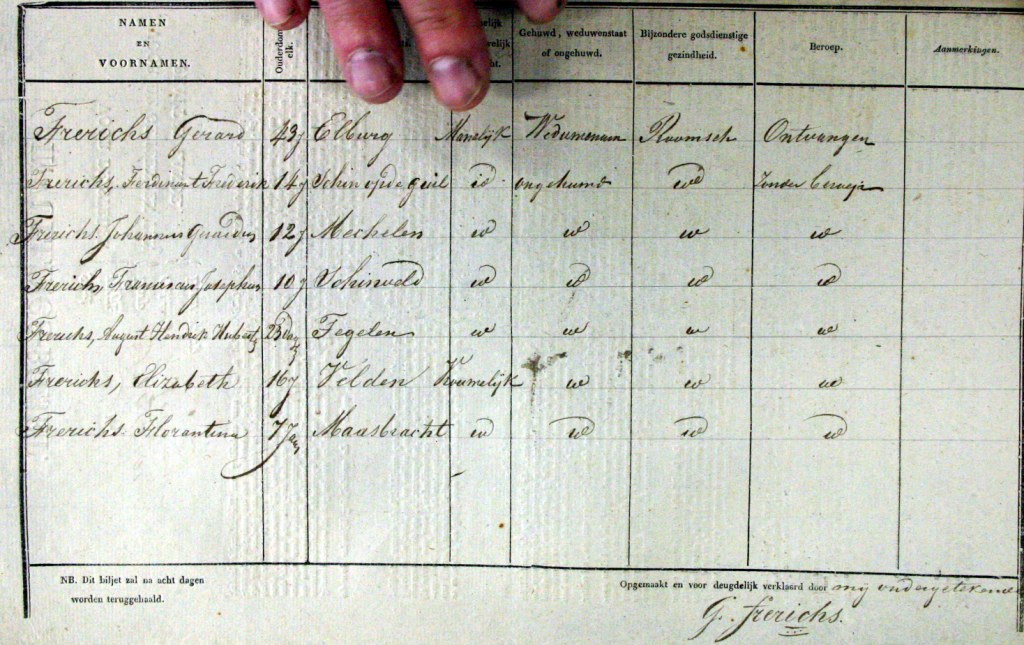 NAMEN EN VOORNAMEN. Ouderdom elk. Gehuwd, weduwenstaat of ongehuwd. Bijzondere godsdienstige gezindheid. Beroep. Aanmerkingen.
Frerichs Gerard 43j Elburg Manelijk Wedumenaar Roomsch Ontvangen
Frerichs, Ferdinant Frederik 14j Schin op de geul id ongehuwd id Zonder beroep
Frerichs Johannes Gerardus 12j Mechelen id id id id
Frerichs, Franciscus Josephus 10j Schinveld id id id id
Frerichs, August Hendrik Hubert 23 Dag Tegelen id id id id
Frerichs, Elizabeth 16j Velden Vroumelijk id id id
Frerichs Florantina 7 Jaar Maasbracht id id id id
NB. Dit biljet zal na acht dagen worden teruggehaald.
Opgemaakt en voor deugdelijk verklaard door mij ondergetekende
G. Frerichs.